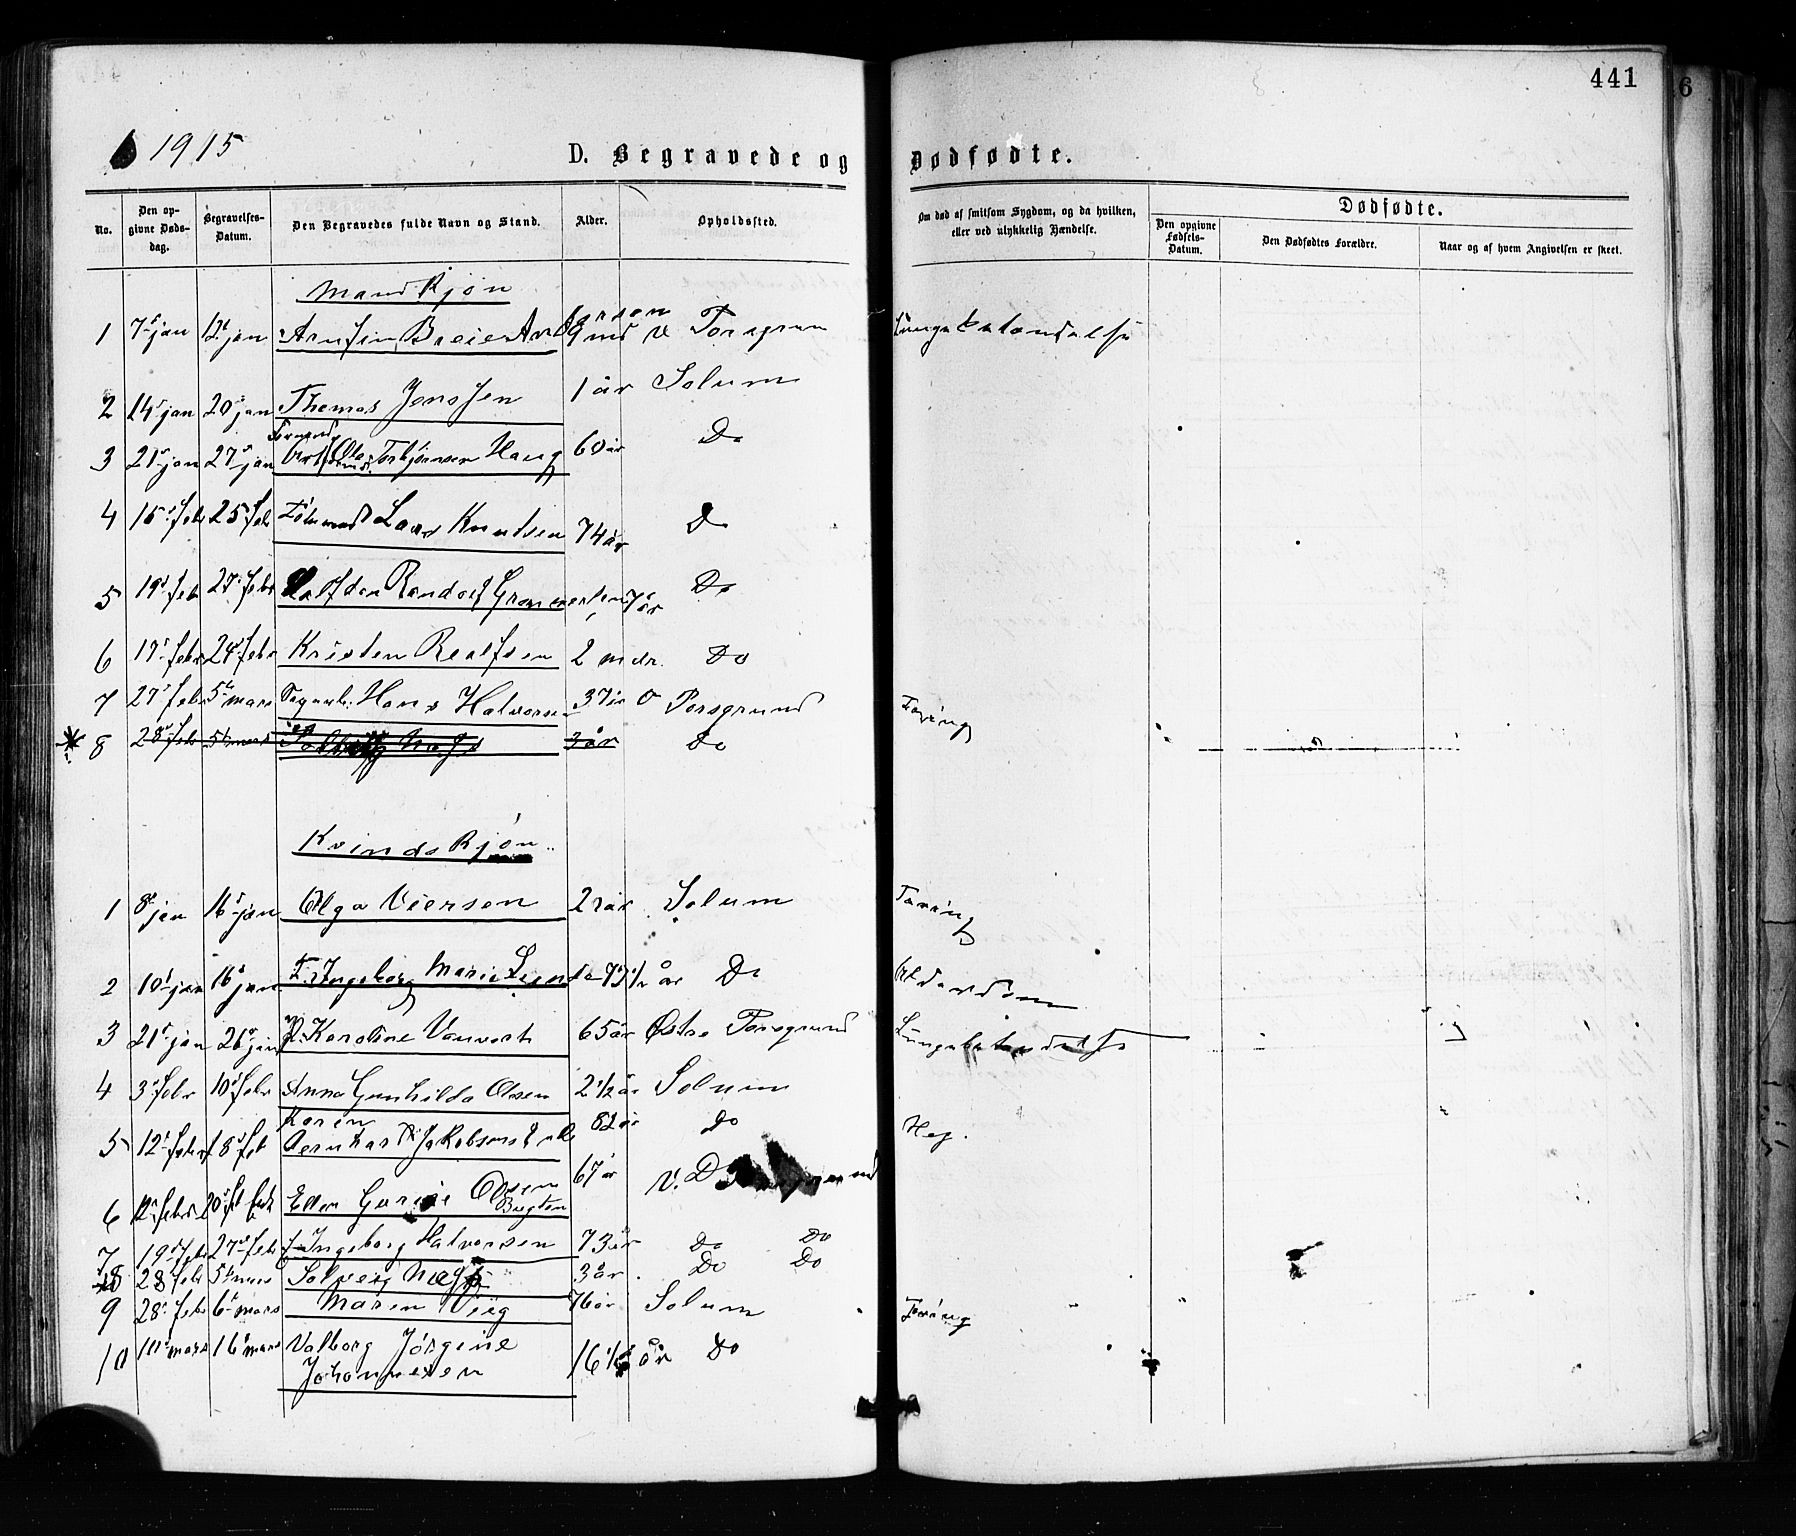 441
6
1915
D. Begravede og Dødfødte.
No.
Den opgivne Dødsdag.
Begravelses-Datum.
Den Begravedes fulde Navn og Stand.
Alder.
Opholdssted.
Om død af smitsom Sygdom, og da hvilken, eller ved ulykkelig Hændelse.
Dødfødte.
Den opgivne Fødsels-Datum.
Den Dødfødtes Forældre.
Naar og af hvem Angivelsen er skeet.
Mand Kjøn
1 7 jan 12 jan Arnfin Breie 9 md V Porsgrun
2 14 jan 20 jan Thomas Jenssen 1 år Solum
3 21 jan 27 jan Ole Torbjørnsen Haug 60 år Do
4 15 febr 25 feb Lars Knutsen 74 år Do
5 19 feb 27 febr Halfdan 7 år Do
6 17 febr 24 febr Kristen Realfsen 2 mdr. Do
7 27 febr 5 mars Hans Halvorsen 37 år O Porsgrund Tæring
8 28 feb 5 mars 3 år Do
Kvinds Kjøn
1 8 jan 16 jan Olga Viersen 2 år Solum Tæring
2 10 jan 16 jan F. Ingeborg Marie år Do Alderdom
3 21 jan 26 jan Karoline 65 år Østre Porsgrund
4 3 febr 10 febr Anna Gunhilda Olsen 2 1/2 år Solum
5 12 febr 18 feb Karen Jakobsens 82 år Do
6 12 febr 20 Ellen Olsen 67 år V.
7 19 febr 27 febr Ingeborg Halvorsen 73 år Do Do
8 28 febr 5 mars Solveig Næss 3 år Do Do
9 28 febr 6 mars Maren Viig 76 år Solum Tæring
10 10 mars 16 mars Valborg Jørgine Johannesen 16 år Do